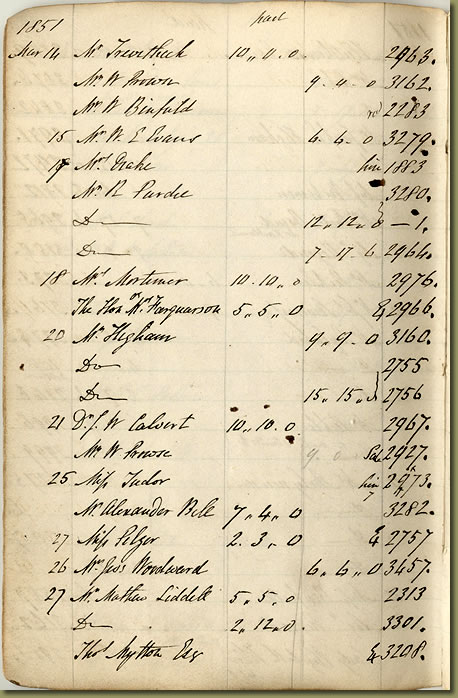 1851
paid
Mar 14 Mr Trevethick 10,, 0.. 0 2963.
Mr W Prowse 9.. 4.. 0 3162.
Mr W Binfuld 2283
15 Mr W. E Evans 6.. 6.. 0 3279.
17 Mrs Drake hire 1883
Mr R Purdie 3280.
Do 12,, 12,, 0 — 1.
Do 7.. 17.. 6 2964.
18 Mrs Mortimer 10.. 10.. 0 2976.
The Hon Mrs Farquarson 5,, 5,, 0 & 2966.
20 Mr Higham 9,, 9.. 0 3160.
Do 2755
Do 15,, 15,, 0 2756
21 Dr J. W Calvert 10,, 10.. 0 2967.
Mr W Prowse 9.. 0 2927.
25 Miss Tudor hire 2973.
Mr Alexander Bell 7,, 4,, 0 3282.
27 Miss Pelzer 2.. 3,, 0 & 2757
26 Mr Jas Woodward 6,, 6,, 0 3457.
27 Mr Mathew Liddell 5,, 5.. 0 2313
Do 2,, 12,, 0 3301.
Thos Mytton Esq & 3208.